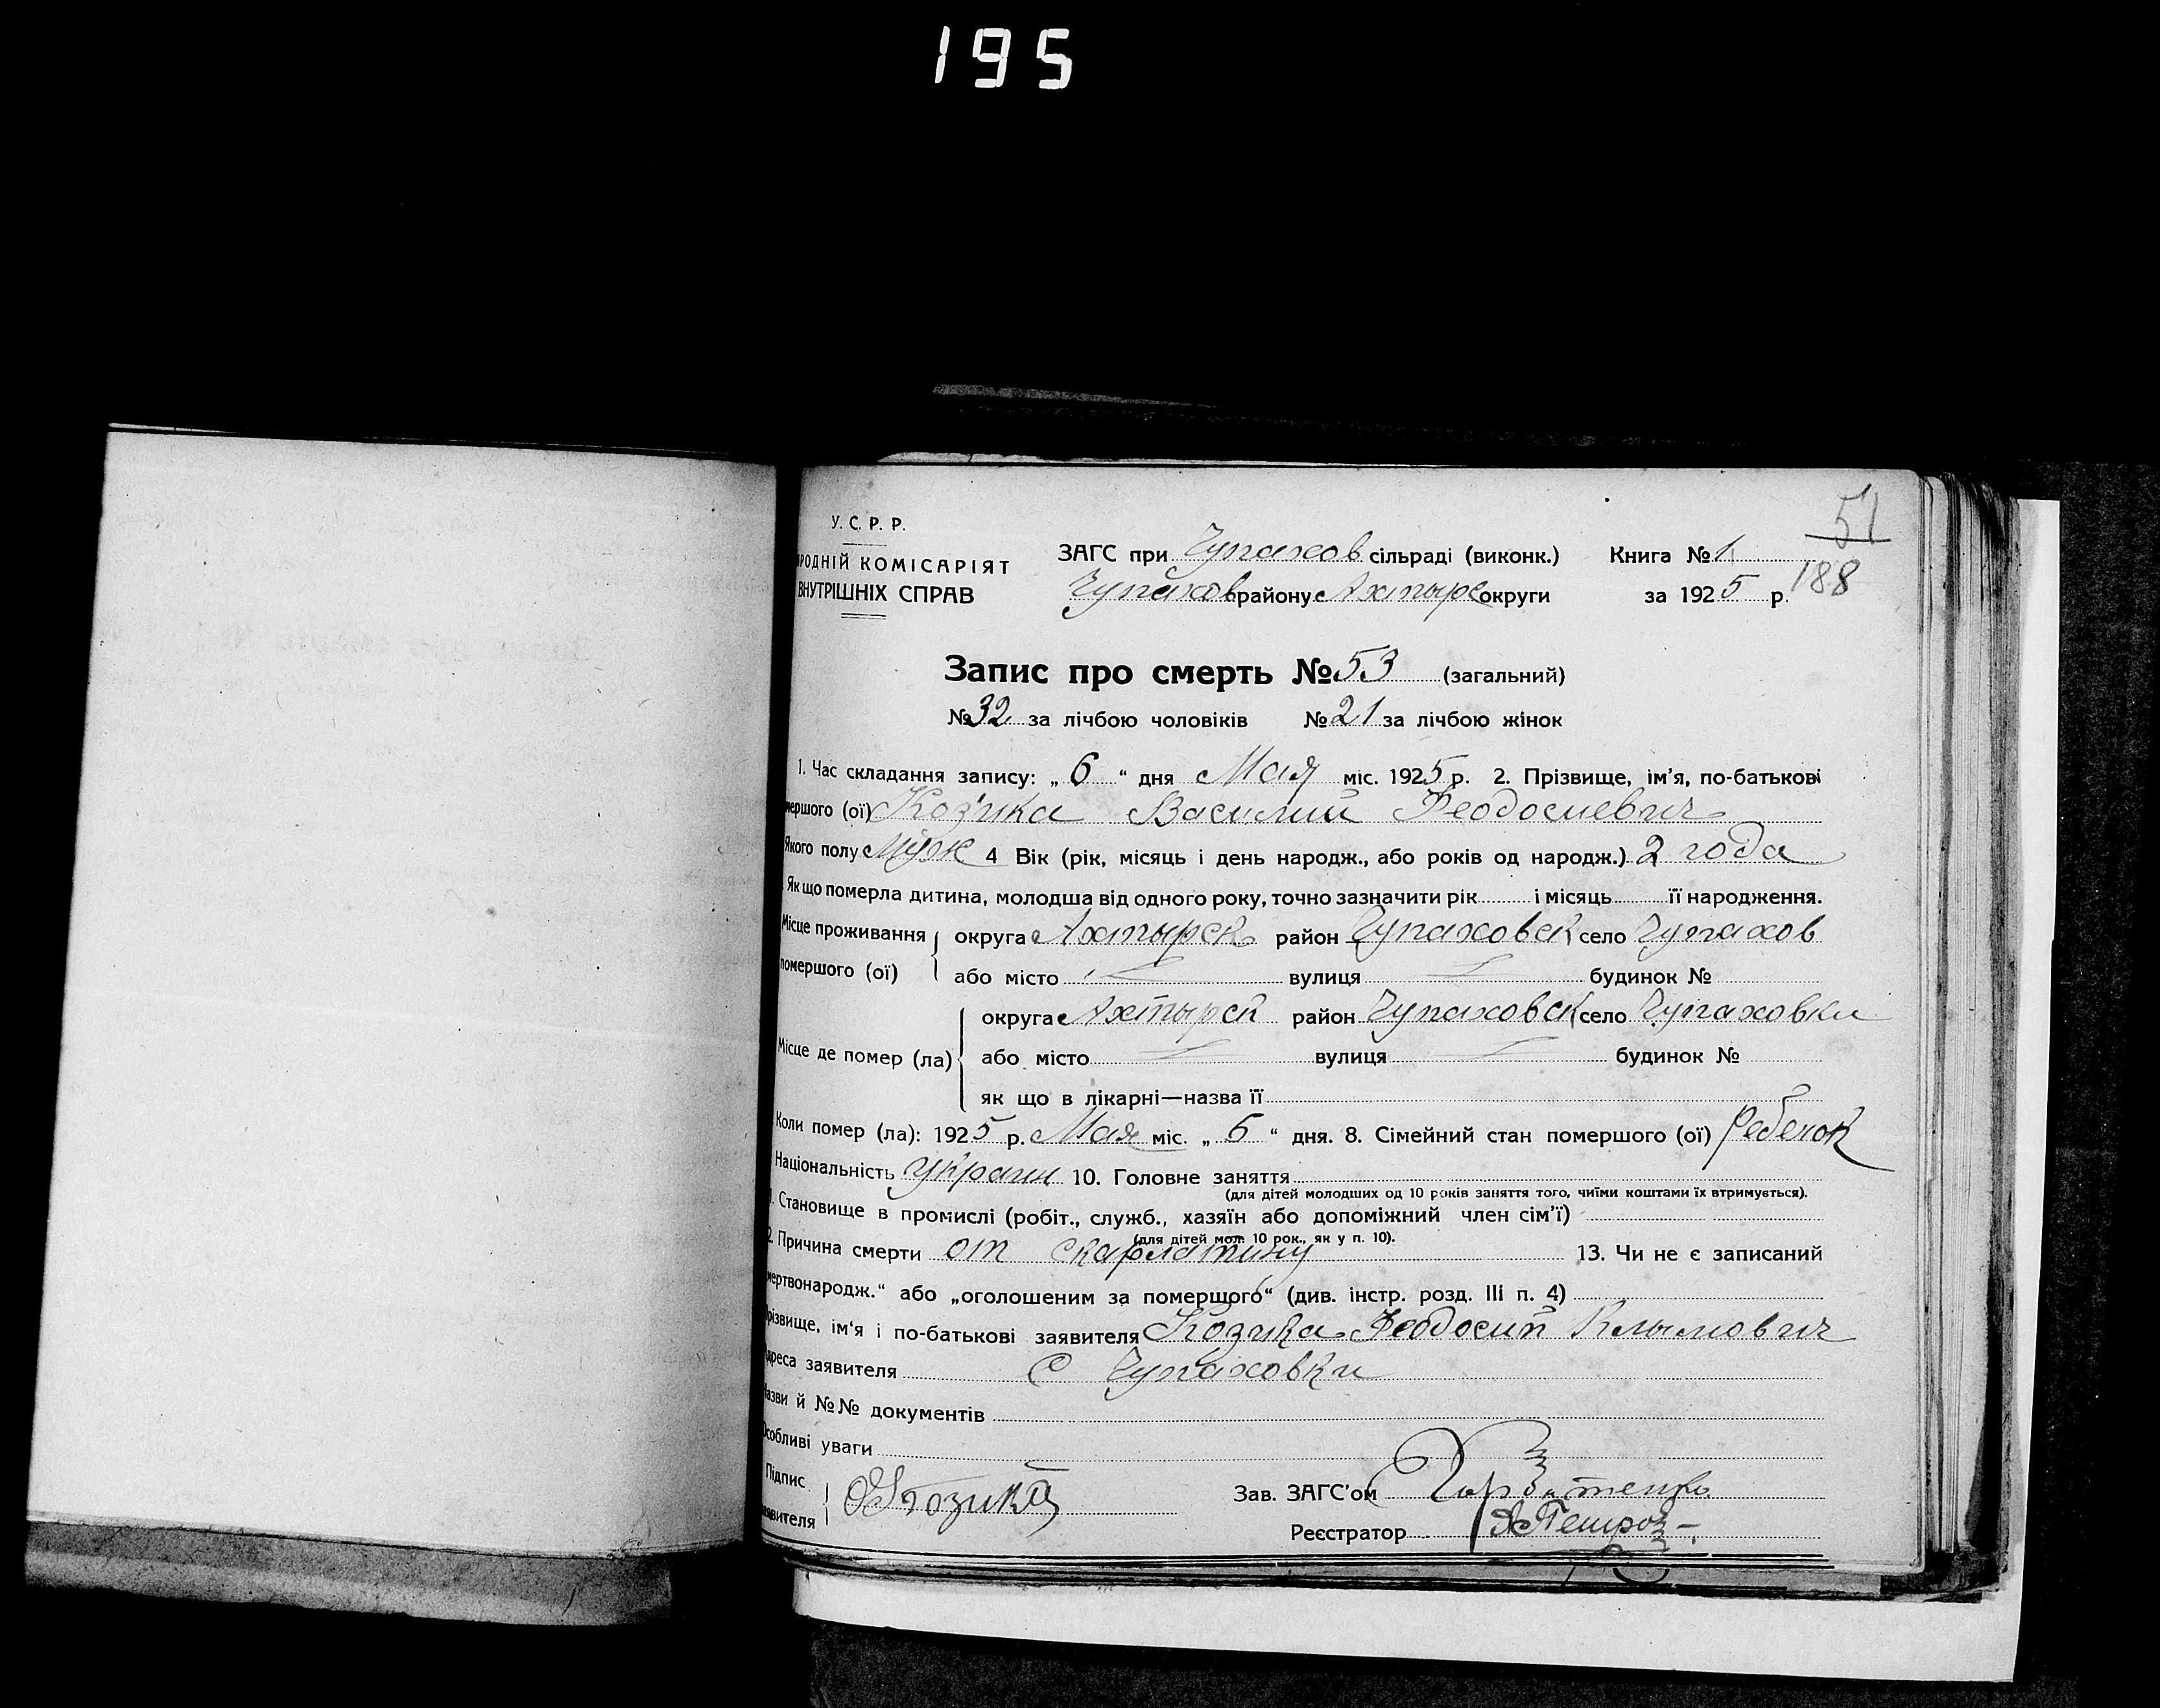 195
51
188
У. С. Р. Р.
РОДНІЙ КОМІСАРІЯТ
ВНУТРІШНІХ СПРАВ
ЗАГС при Чупахов сільраді (виконк.) Книга № 1
Чупахов району Ахтырс округи за 1925 р.
Запис про смерть № 53 (загальний)
№ 32 за лічбою чоловіків № 21 за лічбою жінок
1. Час складання запису: „ 6 “ дня Мая міс. 1925 р. 2. Прізвище, ім’я, по-батькові
мершого (ої) Козика Василий Феодосиевич
Якого полу Муж 4 Вік (рік, місяць і день народж., або років од народж.) 2 года
Як що померла дитина, молодша від одного року, точно зазначити рік і місяць її народження.
Місце проживання округа Ахтырск район Чупаховск село Чупахов
помершого (ої) або місто вулиця будинок №
округа Ахтырск район Чупаховск село Чупаховки
Місце де помер (ла) або місто вулиця будинок №
як що в лікарні—назва її
Коли помер (ла): 1925 р. Мая міс. „ 6 “ дня. 8. Сімейний стан помершого (ої) ребенок
Національність украин 10. Головне заняття
(для дітей молодших од 10 років заняття того, чиїми коштами їх втримується).
1. Становище в промислі (робіт., служб., хазяїн або допоміжний член сім’ї)
(для дітей мол. 10 рок., як у п. 10).
2. Причина смерти от скарлатину 13. Чи не є записаний
мертвонародж.“ або „оголошеним за помершого“ (див. інстр. розд. III п. 4)
різвище, ім‘я і по-батькові заявителя Козика Феодосий Клымович
дреса заявителя с Чупаховки
азви й №№ документів
Особливі уваги
Підпис
аявителя Козика
Зав. ЗАГС’ом
Реєстратор